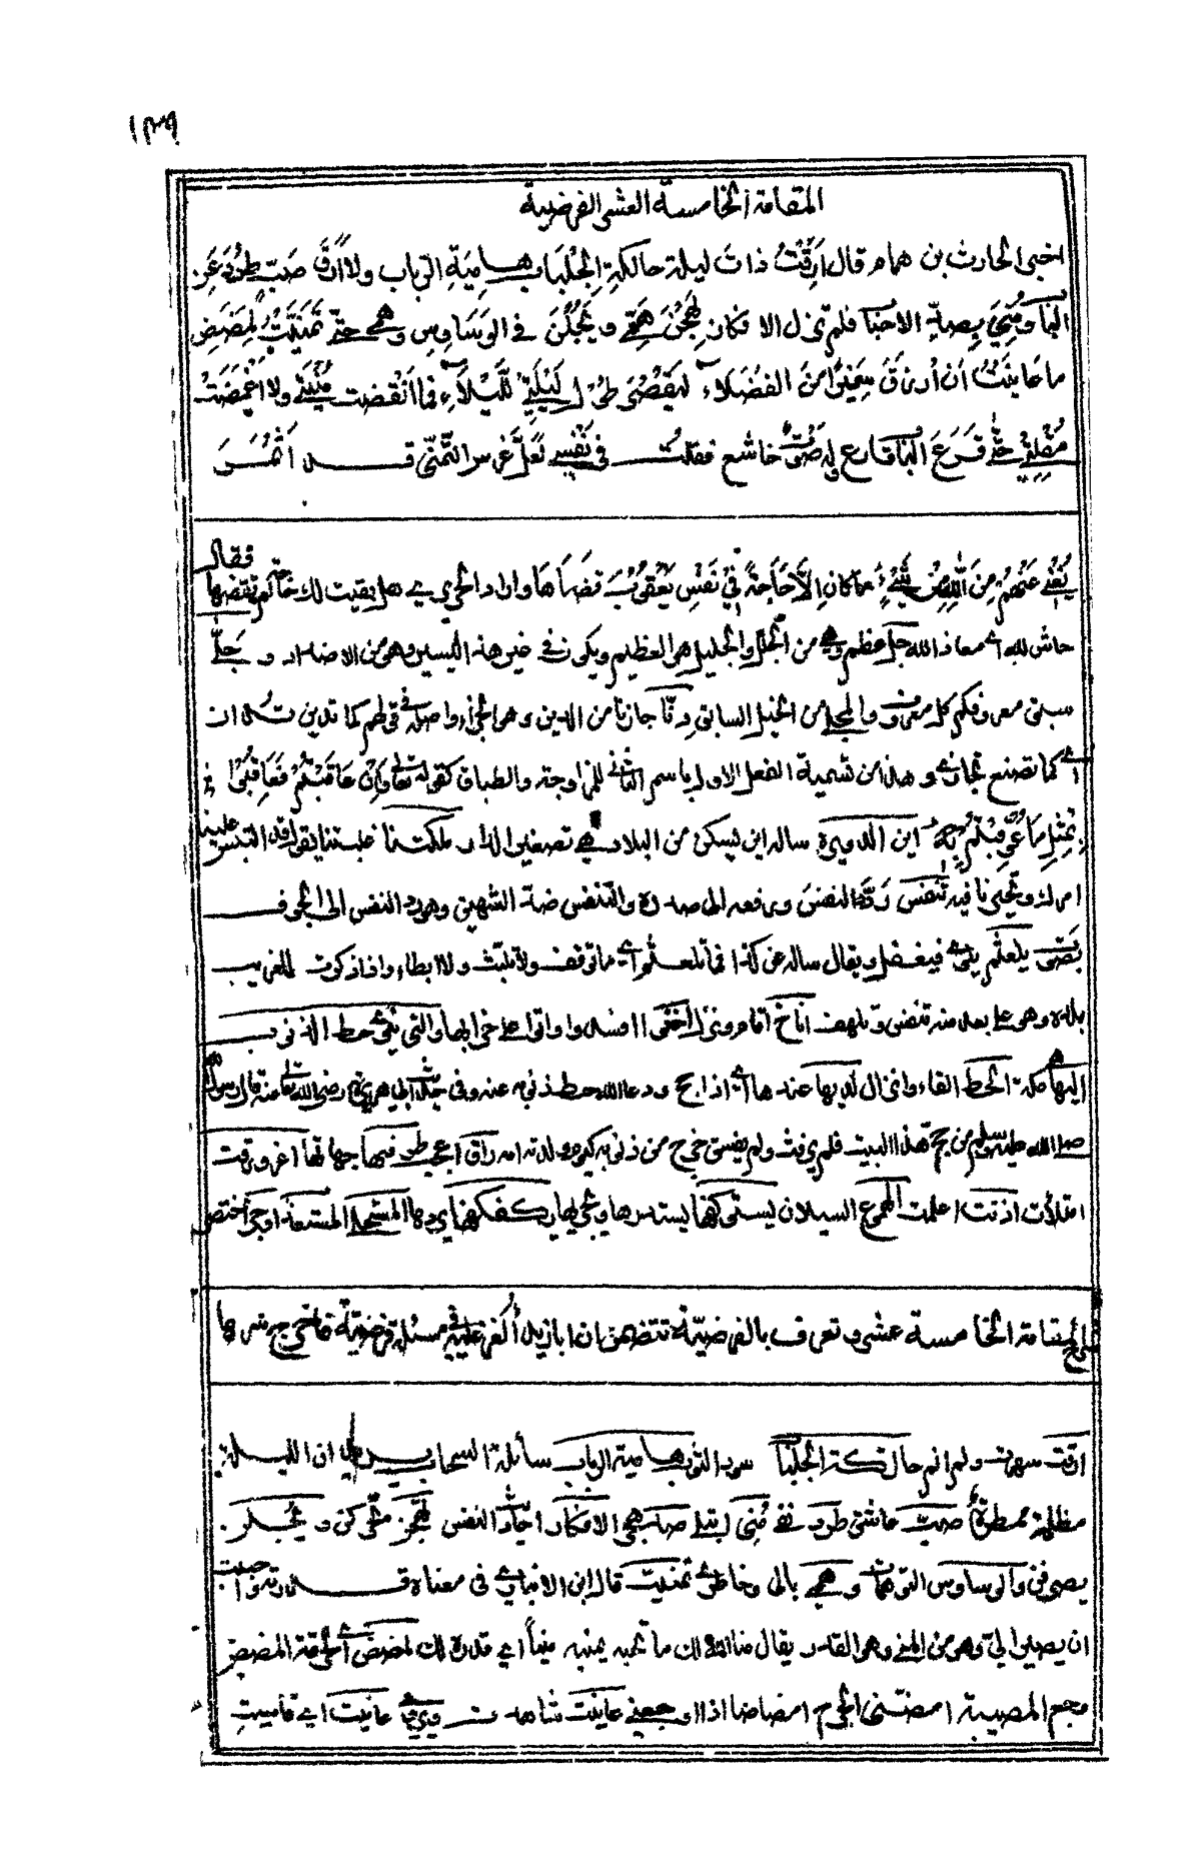 ١٣٩
المقامة الخامسة العشر الفرضية
اخبر الحارث بن همام قال ارقت ذات ليلة حالكة الجلباب هامية الرباب ولا ارق صب طرد عن
الباب ومني بصد الاحباب فلم تزل الافكار يهجن همي ويجلن في الوساوس وهمي حتى تمنيت لمضض
ما عانيت ان ارزق سميرا من الفضلاء ليقصر طول ليلتي الليلاء فما انقضت منيتي ولا اغمضت
مقلتي حتى قرع الباب قارع له صوت خاشع فقلت في نفسي لعل غرس التمني قد اثمر
يغني عنهم من الله من شيء ما كان الا حاجة في نفس يعقوب قضاها واراد الحريري هل بقيت لك حاجة لم تقضها فقال
حاش لله اي معاذ الله جل عظم وهي من الجلل والجليل هو العظيم ويكون في غير هذا اليسير وهو من الاضداد و جلى
سبق معروفكم كل معروف والمجلي من الخيل السابق دنا جازنا من الدين وهو الجزاء واصله في قولهم كما تدين تدان
اي كما تصنع تجازى وهذا من تسمية الفعل الاول باسم الثاني للمزاوجة والطباق كقوله تعالى وان عاقبتم فعاقبوا
بمثل ما عوقبتم به اين الدويرة ساله اين يسكن من البلاد هي تصغير الدار ملكتنا غلبتنا يقال قد التبس علينا
امرك وتحيرنا فيه تنفس رد النفس ورفعه الى صدره والتنفس ضد الشهيق وهو رد النفس الى الجوف
يتلعثم فيفصل ويقال ساله عن كذا فما تلعثم اي ما توقف ولا تلبث ولا ابطا واذا ذكرت للغريب
بلاده وهو على بعد منه تنفس وتلهف اناخ اقام ونزل اخنى افسد واتوا على خرابها والتي يعني حط الذنوب
اليها مكة الحط القاء وانزال لديها عندها اي اذا حج ودعا الله حط ذنوبه عنه وفي حديث ابي هريرة رضي الله تعالى عنه قال رسول الله
صلى الله عليه وسلم من حج هذا البيت فلم يرفث ولم يفسق خرج من ذنوبه كيوم ولدته امه راق اعجب طرفيها جهاتها اغرورقت
امتلأت اذنت اعلمت الهموع السيلان يستوكفها يستدرها ويجريها يكفكفها يردها المستحلى المستعذب اوجز اختصر
المقامة الخامسة عشر وتعرف بالفرضية تتضمن ان ابا زيد الغز عليه في مسئلة فرضية فاستخرج سرها
ارقت سهرت ولم انم حالكة الجلباب سود الثوب هامية الرباب سائلة السحاب يريد ان الليلة
مظلمة ممطرة صب عاشق طرد نفي مني ابتلي صد هجر الافكار احاديث النفس يهجن يحركن ويجلن
يصرفن والوساوس التوهمات وهمي بالي وخاطري تمنيت قال ابن الانباري في معناه قدرت واحببت
ان يصير الي وهو من المنى وهو القدر يقال منى الله لك ما تحبه يمنيه منيا اي قدره لك لمضض اي لحرقة المضض
وجع المصيبة امضني الجرح امضاضا اذا اوجعني عاينت شاهدت ويروى عانيت اي قاسيت